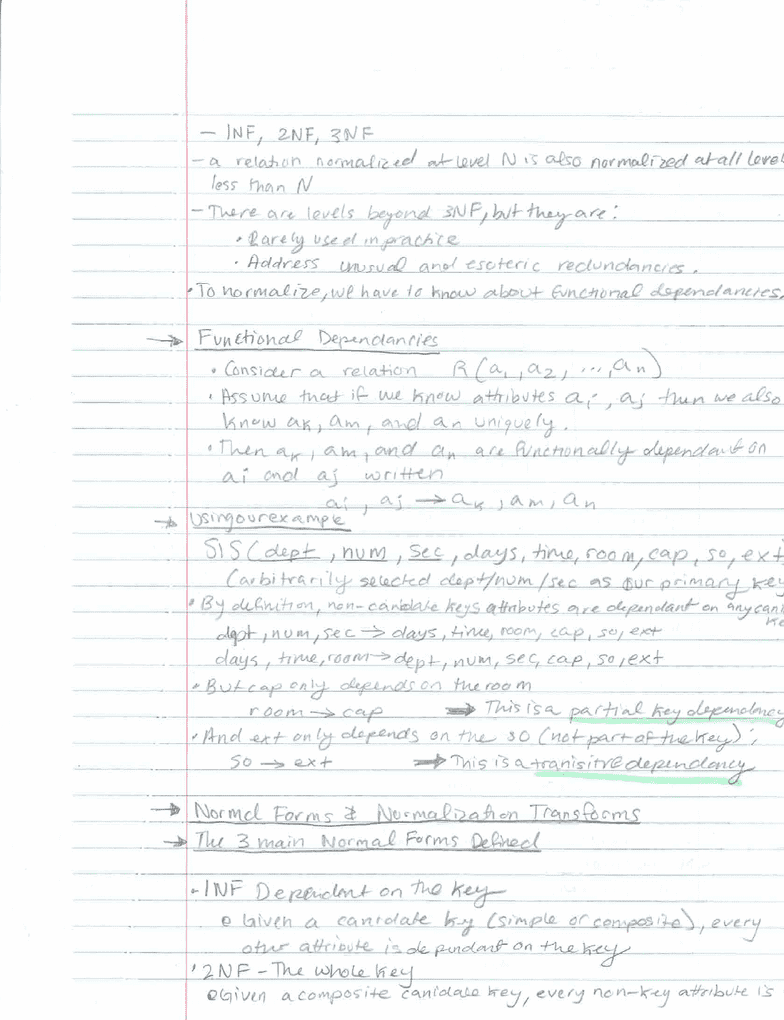 - 1NF, 2NF, 3NF
- a relation normalized at level N is also normalized at all level
less than N
- There are levels beyond 3NF, but they are:
• Rarely used in practice
• Address unusual and esoteric redundancies.
• To normalize, we have to know about functional dependancies,
→ Functional Dependancies
• Consider a relation R(a1, a2, ..., an)
• Assume that if we know attributes ai, aj then we also
know ak, am, and an uniquely.
• Then ak, am, and an are functionally dependant on
ai and aj written
ai, aj → ak, am, an
→ Using our example
SIS(dept, num, sec, days, time, room, cap, so, ext
(arbitrarily selected dept/num/sec as our primary key
• By definition, non-canidate keys attributes are dependant on any cani
ke
dept, num, sec → days, time, room, cap, so, ext
days, time, room → dept, num, sec, cap, so, ext
• But cap only depends on the room
room → cap ⇒ This is a partial key dependancy
• And ext only depends on the so (not part of the key);
so → ext ⇒ This is a tranisitve dependancy
→ Normal Forms & Normalization Transforms
→ The 3 main Normal Forms Defined
• 1NF Dependant on the key
• Given a canidate key (simple or composite), every
other attribute is dependant on the key
• 2NF - The whole key
• Given a composite canidate key, every non-key attribute is